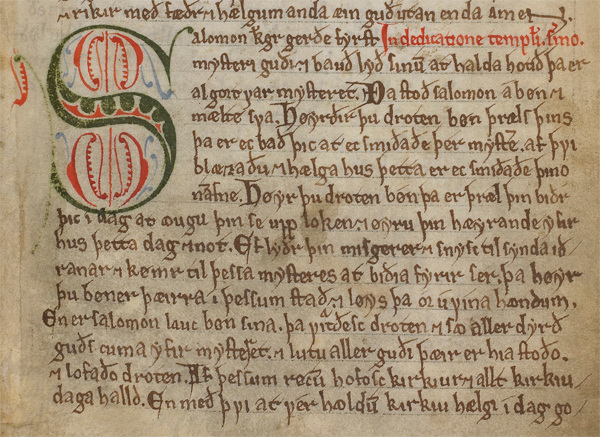 ⁊ rikir með fæðr ⁊ hælgum anda æin guð utan enda amen.
Salomon kgr gerðe fyrst In dedicatione templi. s̄mo.
mysteri guði ⁊ bauð lyð sinū at halda hotið þa er
algort var mysteret. Ða stoð salomon a bøn ⁊
mælte sva. Høyrðu þu droten bøn þræls þins
þa er ec bað þic at ec smidaðe þer myste. at þvi
blæzaðu ⁊ hælga hus þetta er ec smidaðe þino
namne. Høyr þu droten bøn þa er þræl þin biðr
þic i dag at ougu þin se upp loken ⁊ øyru þin hæyrande yfir
hus þetta dag ⁊ not. Ef lyðr þin misgerer ⁊ snysc til synda ið
ranar ⁊ kømr til þessa mysteres at biðia fyrir ser. þa høyr
þu bøner þæirra i þessum stað. ⁊ løys þa or uvina hændum.
En er salomon lauc bøn sina. þa virðesc droten ⁊ aller dyrð
guðs cuma yfir mysteret. ⁊ lutu aller guði þæir er hia stoðo.
⁊ lofaðo droten. Af þessum recū hofosc kirkiur ⁊ allt kirkiu
daga halld. En með þvi at vér høldū kirkiu hælgi i dag go